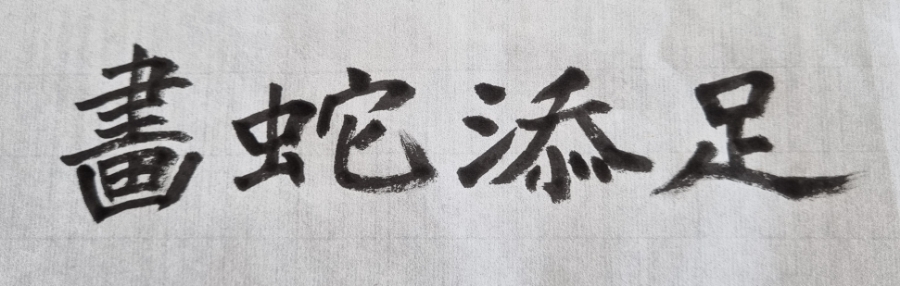 畫蛇添足